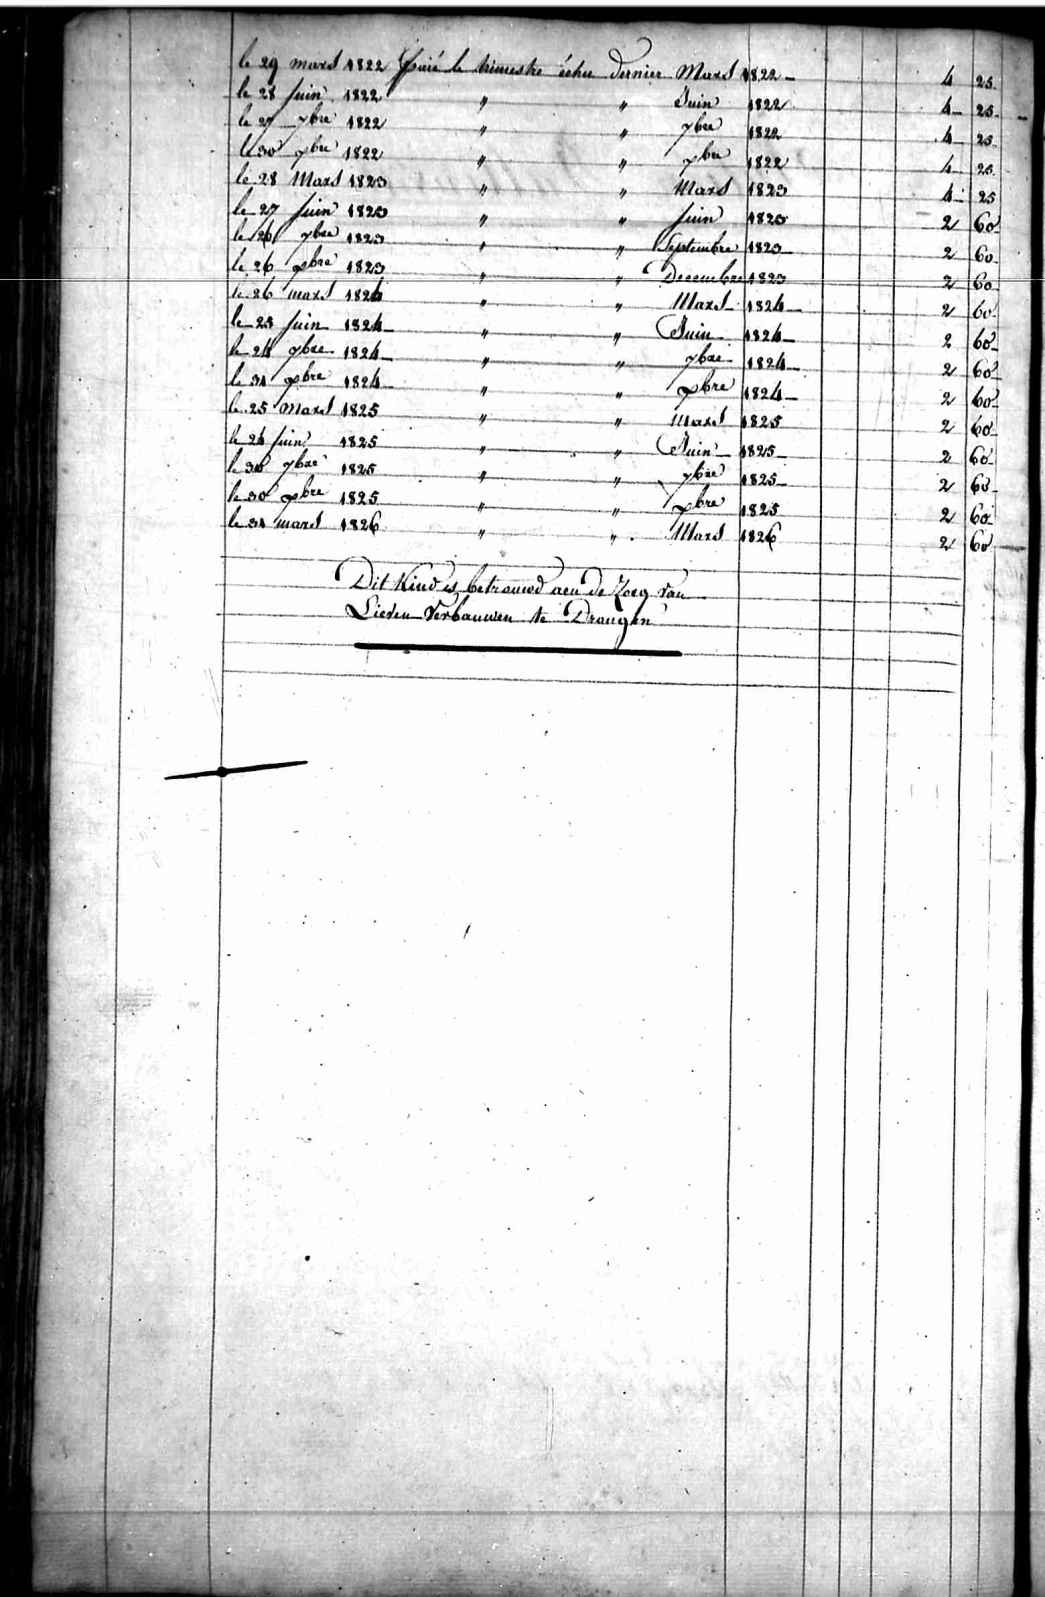 le 29 mars 1822 Paié le trimestre échu dernier Mars 1822 4 25
le 28 Juin 1822 " " Juin 1822 4 25
le 27 7bre 1822 " " 7bre 1822 4 25
le 30 xbre 1822 " " xbre 1822 4 25
le 28 Mars 1823 " " Mars 1823 4 25
le 27 Juin 1823 " " Juin 1823 2 60
le 26 7bre 1823 " " Septembre 1823 2 60
le 26 xbre 1823 " " Decembre 1823 2 60
le 26 mars 1824 " " Mars 1824 2 60
le 25 Juin 1824 " " Juin 1824 2 60
le 24 7bre 1824 " " 7bre 1824 2 60
le 31 xbre 1824 " " xbre 1824 2 60
le 25 Mars 1825 " " Mars 1825 2 60
le 24 Juin 1825 " " Juin 1825 2 60
le 30 7bre 1825 " " 7bre 1825 2 60
le 30 xbre 1825 " " xbre 1825 2 60
le 31 mars 1826 " " Mars 1826 2 60
Dit Kind is betrouwd aen de Zorg van
Lieven Verbauwen te Drongen